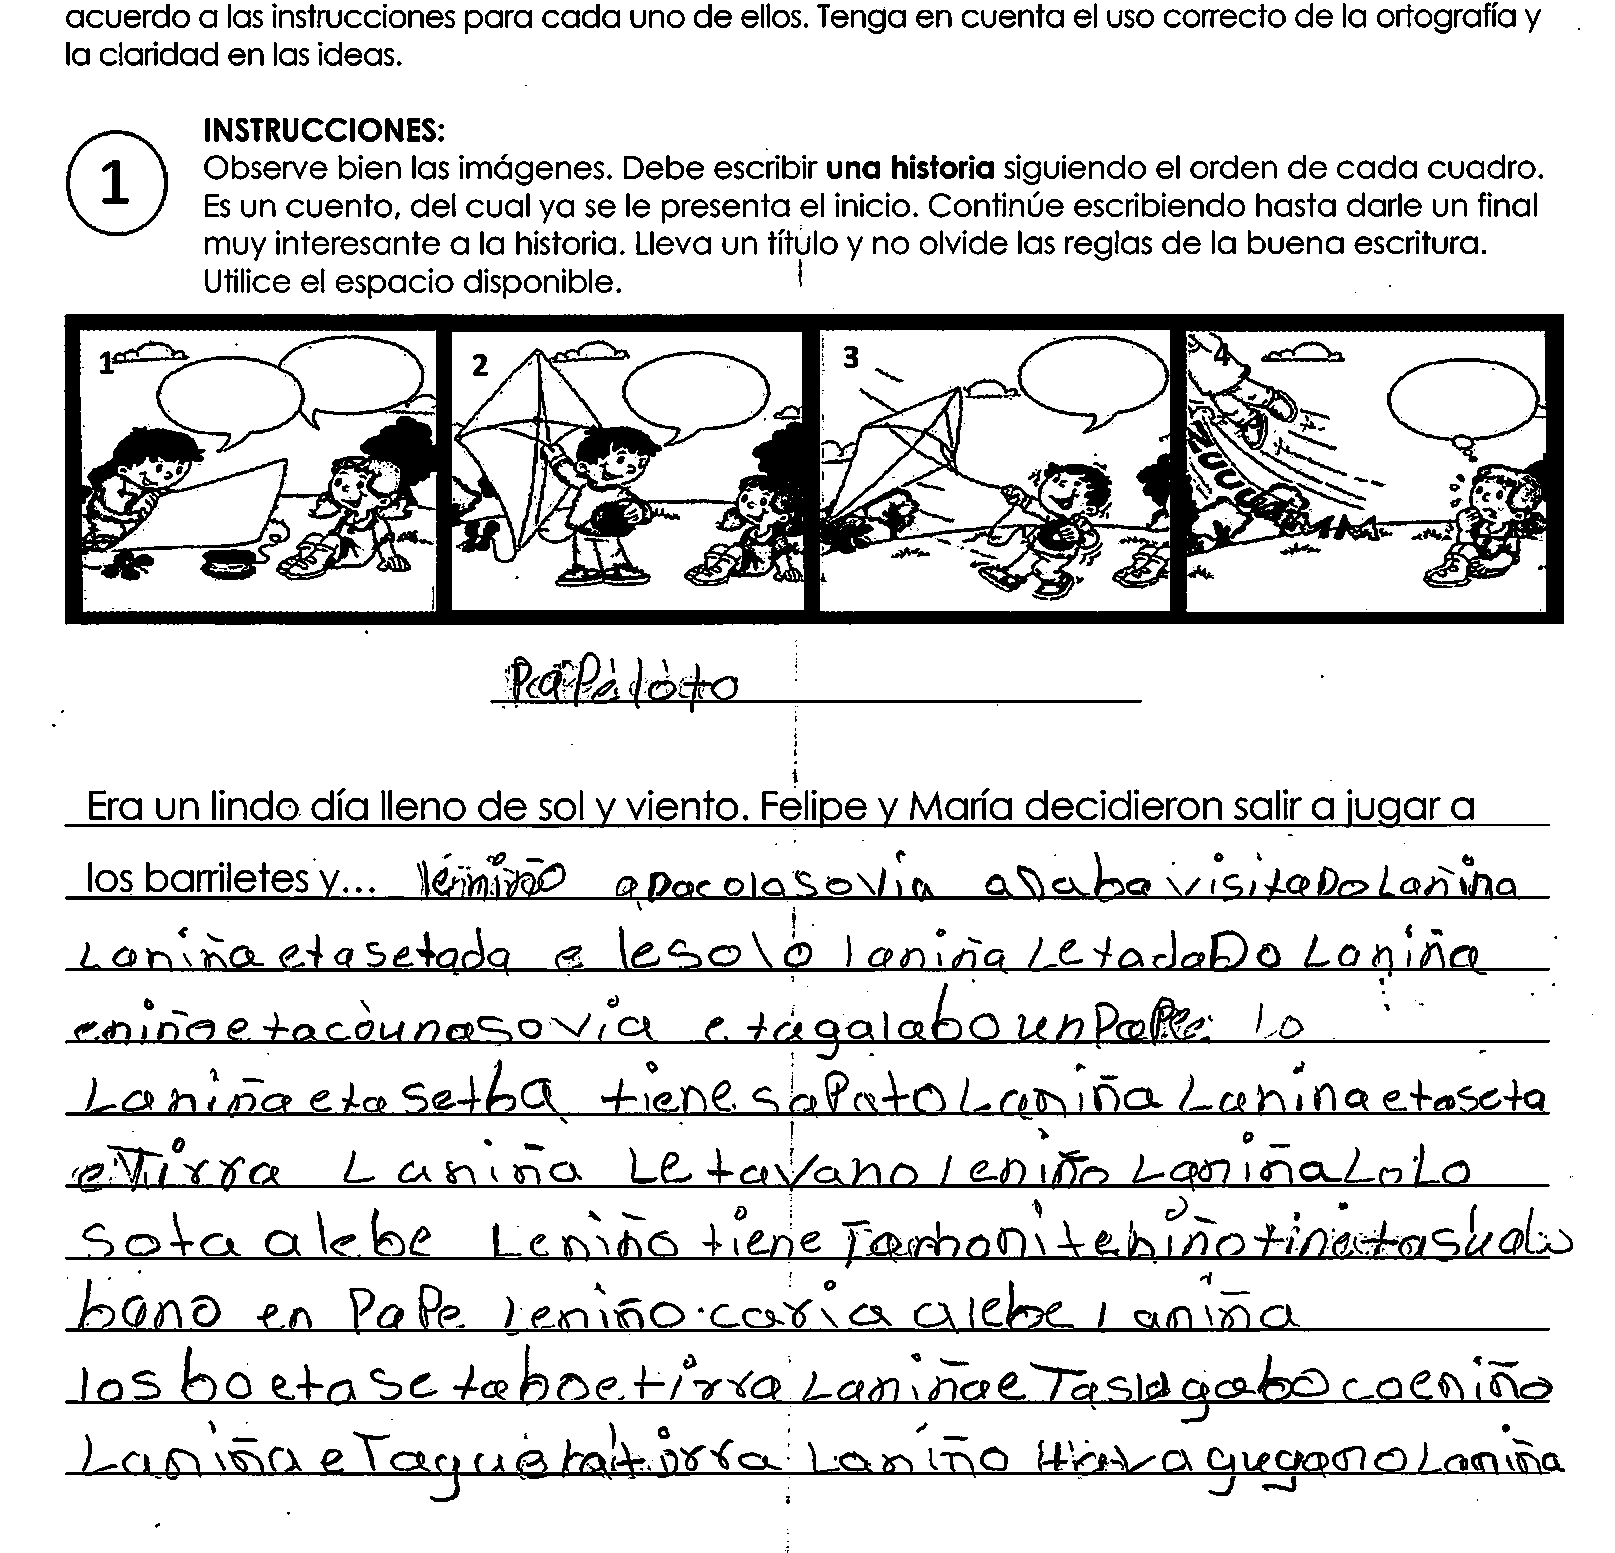 acuerdo a las instrucciones para cada uno de ellos. Tenga en cuenta el uso correcto de la ortografía y
la claridad en las ideas.
1
INSTRUCCIONES:
Observe bien las imágenes. Debe escribir una historia siguiendo el orden de cada cuadro.
Es un cuento, del cual ya se le presenta el inicio. Continúe escribiendo hasta darle un final
muy interesante a la historia. Lleva un título y no olvide las reglas de la buena escritura.
Utilice el espacio disponible.
1 2 3 4
Papeloto
Era un lindo día lleno de sol y viento. Felipe y María decidieron salir a jugar a
los barriletes y... leniño apacolasovia anaba visitaDo Laniña
Laniña etasetada e lesolo laniña LetadaDo Laniña
eniñoetacounasovia etagalabounPaPe lo
Laniñaeta setba tiene sapato Laniña Laninaetaseta
eTirra Laniña Letavano leniño Laniña LoLo
sota alebe Leniño tiene
bano en PaPe leniño caria alebe laniña
losboetasetaboetirra LaniñaeTaslagabocoeniño
Laniña Laniño vagugano Laniña